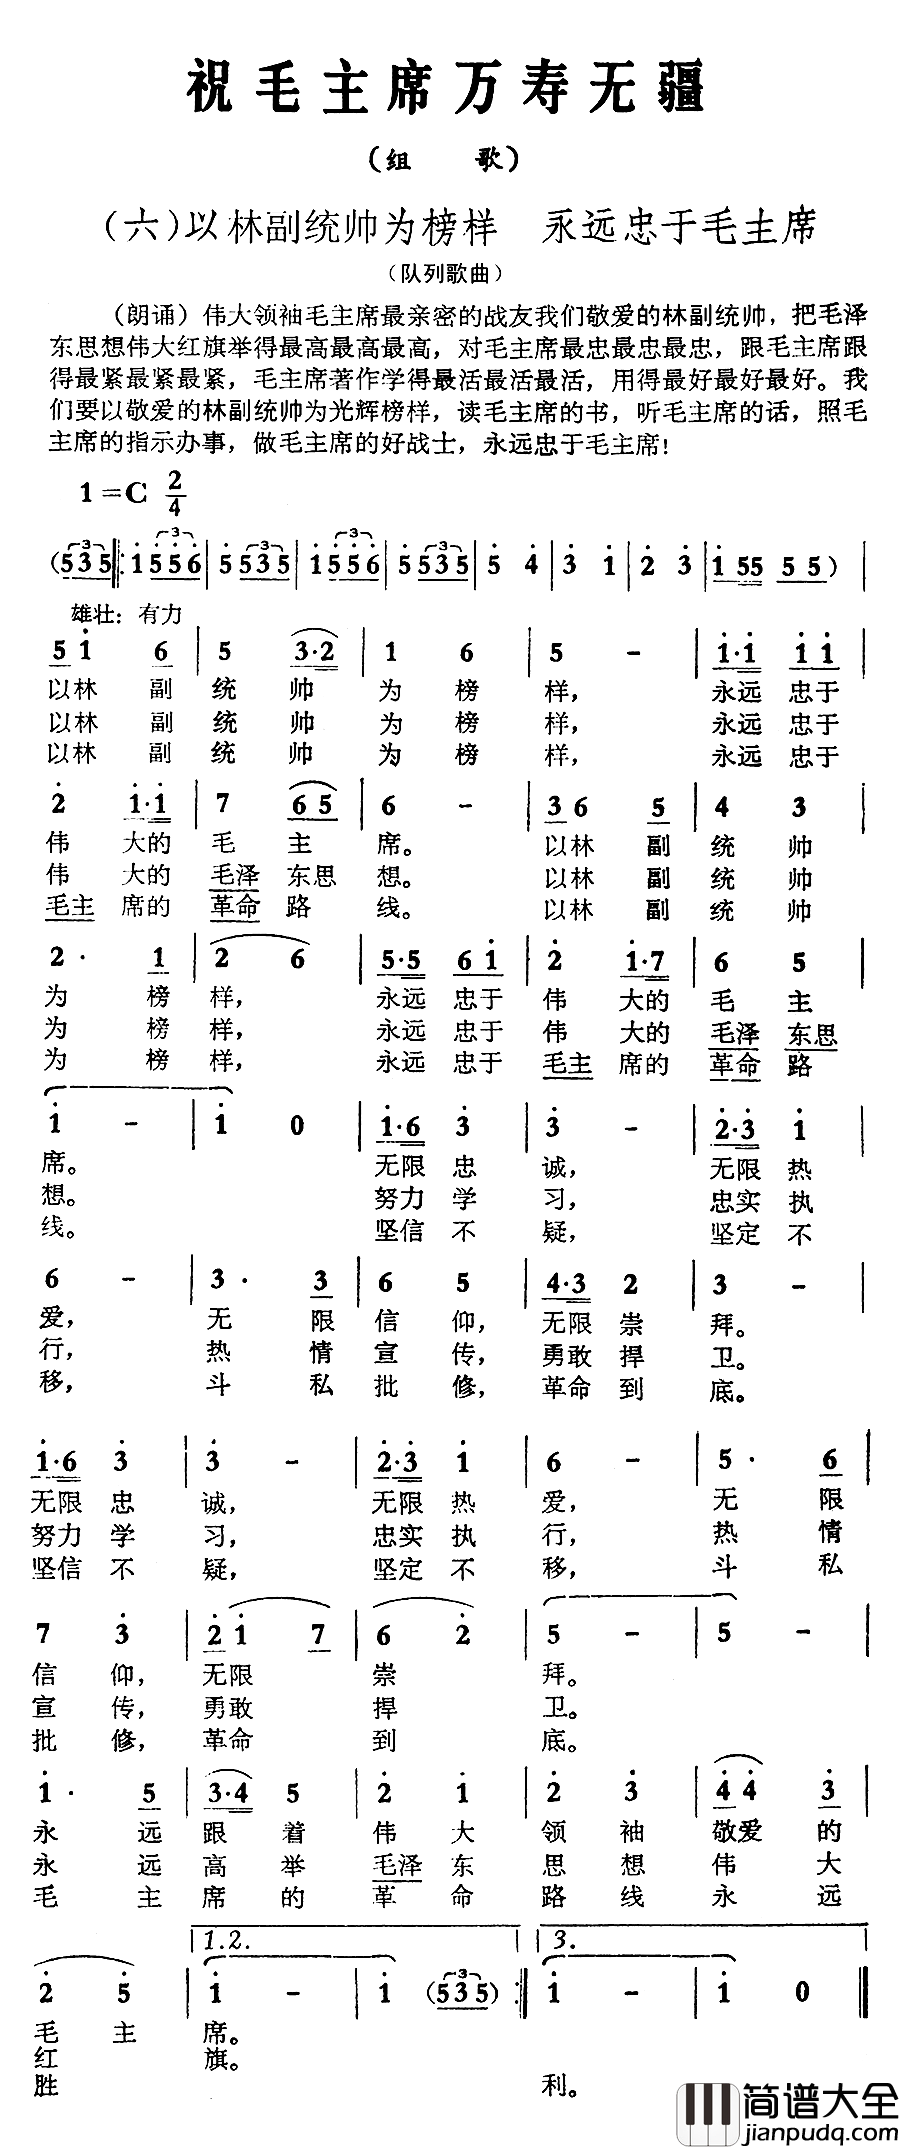 祝毛主席万寿无疆
(组 歌)
(六)以林副统帅为榜样 永远忠于毛主席
(队列歌曲)
(朗诵)伟大领袖毛主席最亲密的战友我们敬爱的林副统帅，把毛泽
东思想伟大红旗举得最高最高最高，对毛主席最忠最忠最忠，跟毛主席跟
得最紧最紧最紧，毛主席著作学得最活最活最活，用得最好最好最好。我
们要以敬爱的林副统帅为光辉榜样，读毛主席的书，听毛主席的话，照毛
主席的指示办事，做毛主席的好战士，永远忠于毛主席！
1=C 2/4
(535 |: 1556 | 5 535 | 1556 | 5 535 | 5 4 | 3 1 | 2 3 | 155 55) |
雄壮：有力
51 6 | 5 3·2 | 1 6 | 5 - | 1·1 11
以林 副 统 帅 为 榜 样， 永远 忠于
以林 副 统 帅 为 榜 样， 永远 忠于
以林 副 统 帅 为 榜 样， 永远 忠于
2 1·1 | 7 65 | 6 - | 36 5 | 4 3
伟 大的 毛 主 席。 以林 副 统 帅
伟 大的 毛泽 东思 想。 以林 副 统 帅
毛主 席的 革命 路 线。 以林 副 统 帅
2· 1 | 2 6 | 5·5 61 | 2 1·7 | 6 5
为 榜 样， 永远 忠于 伟 大的 毛 主
为 榜 样， 永远 忠于 伟 大的 毛泽 东思
为 榜 样， 永远 忠于 毛主 席的 革命 路
1 - | 1 0 | 1·6 3 | 3 - | 2·3 1
席。 无限 忠 诚， 无限 热
想。 努力 学 习， 忠实 执
线。 坚信 不 疑， 坚定 不
6 - | 3· 3 | 6 5 | 4·3 2 | 3 -
爱， 无 限 信 仰， 无限 崇 拜。
行， 热 情 宣 传， 勇敢 捍 卫。
移， 斗 私 批 修， 革命 到 底。
1·6 3 | 3 - | 2·3 1 | 6 - | 5· 6
无限 忠 诚， 无限 热 爱， 无 限
努力 学 习， 忠实 执 行， 热 情
坚信 不 疑， 坚定 不 移， 斗 私
7 3 | 21 7 | 6 2 | 5 - | 5 -
信 仰， 无限 崇 拜。
宣 传， 勇敢 捍 卫。
批 修， 革命 到 底。
1· 5 | 3·4 5 | 2 1 | 2 3 | 44 3
永 远 跟 着 伟 大 领 袖 敬爱 的
永 远 高 举 毛泽 东 思 想 伟 大
毛 主 席 的 革 命 路 线 永 远
1.2. 3.
2 5 | 1 - | 1 (535) :| 1 - | 1 0 ||
毛 主 席。
红 旗。
胜 利。
简谱大全
jianpudq.com